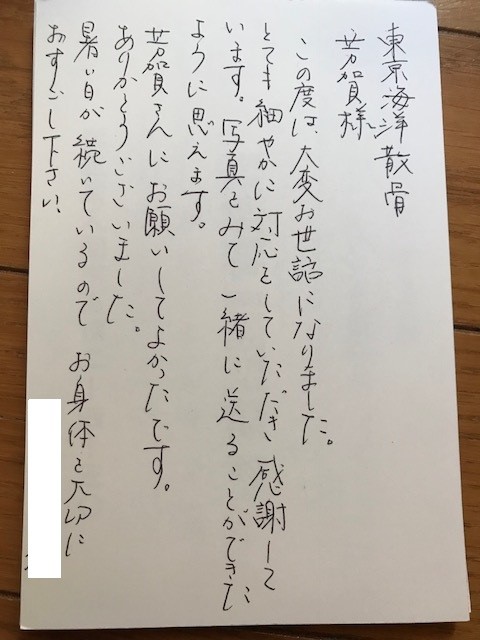 東京海洋散骨
芳賀様
この度は、大変お世話になりました。
とても細やかに対応をしていただき感謝して
います。写真をみて一緒に送ることができた
ように思えます。
芳賀さんにお願いしてよかったです。
ありがとうございました。
暑い日が続いているのでお身体を大切に
おすごし下さい。